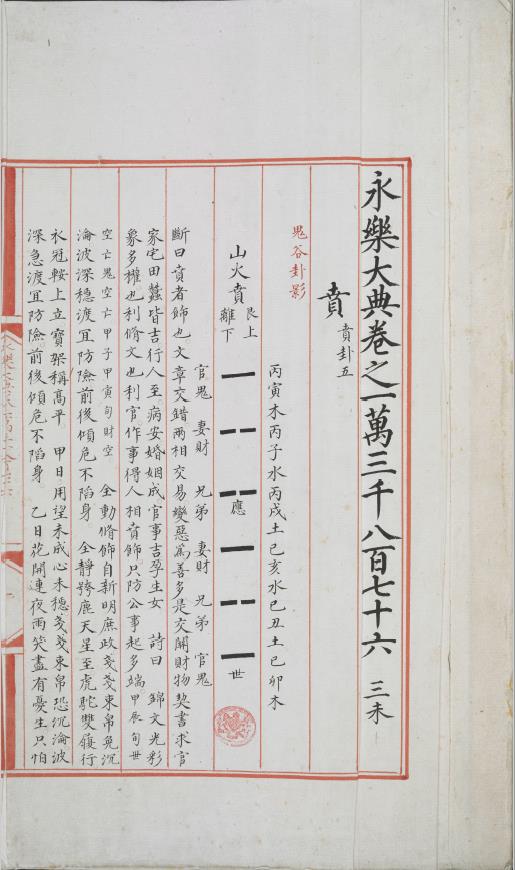 永樂大典卷之一萬三千八百七十六 三未
賁 賁卦五
鬼谷卦影
丙寅木丙子水丙戌土己亥水己丑土己卯木
山火賁 艮上離下 應 世
官鬼 妻財 兄弟 妻財 兄弟 官鬼
斷曰賁者飾也文章交錯兩相交易變惡爲善多是交關財物契書求官
家宅田蠶皆吉行人至病安婚姻成官事吉孕生女 詩曰 錦文光彩
象多權也利脩文也利官作事得人相賁飾只防公事起多端甲辰旬世
空亡鬼空亡甲子甲寅旬財空 全動脩飾自新明庶政戔戔束帛兔沉
淪波深穩渡宜防險前後傾危不陷身 全靜跨鹿天星至虎駝雙履行
衣冠鞍上立寶架稱高平 甲日用望未成心未穩戔戔束帛恐沉淪波
深急渡宜防險前後傾危不陷身 乙日花開連夜雨笑盡有憂生只怕